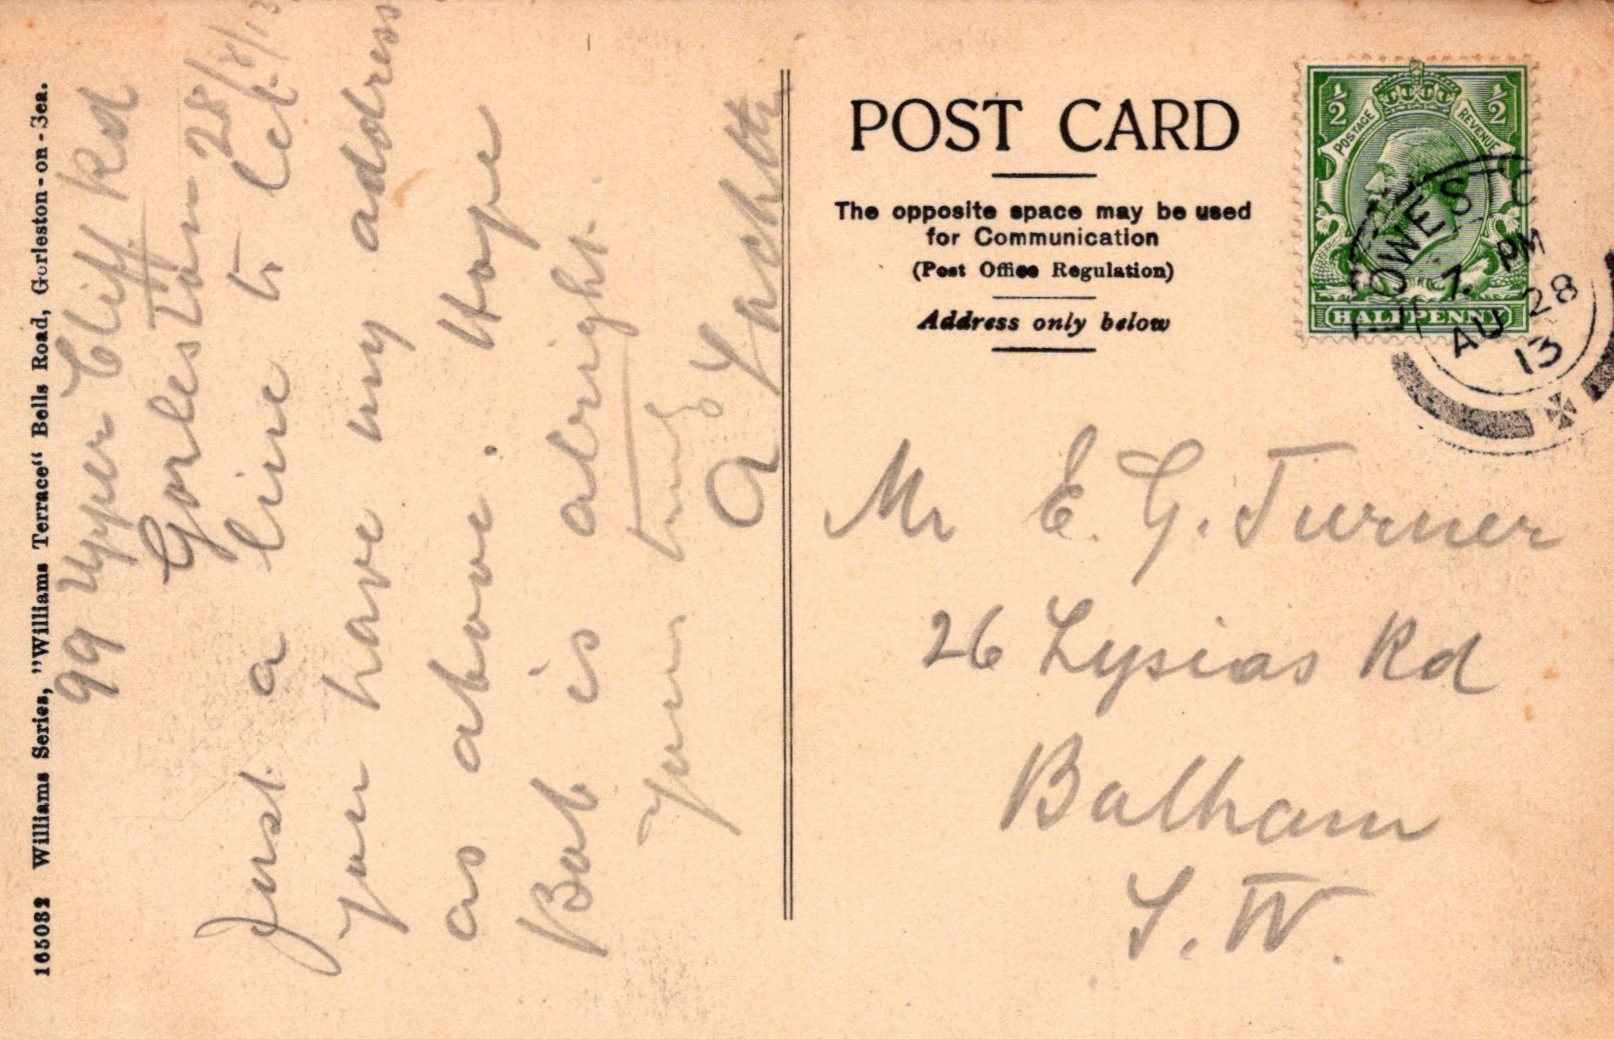 165082 Williams Series, "Williams Terrace" Bells Road, Gorleston-on-Sea.
99 Upper Cliff Rd
Gorleston 28/8/13
Just a line to let
you have my address
as above. Hope
Bob is alright.
Yours truly
POST CARD
The opposite space may be used
for Communication
(Post Office Regulation)
Address only below
½ ½
POSTAGE REVENUE
HALFPENNY
LOWESTO
7. PM
AU 28
13
Mr E. G. Turner
26 Lysias Rd
Balham
S.W.